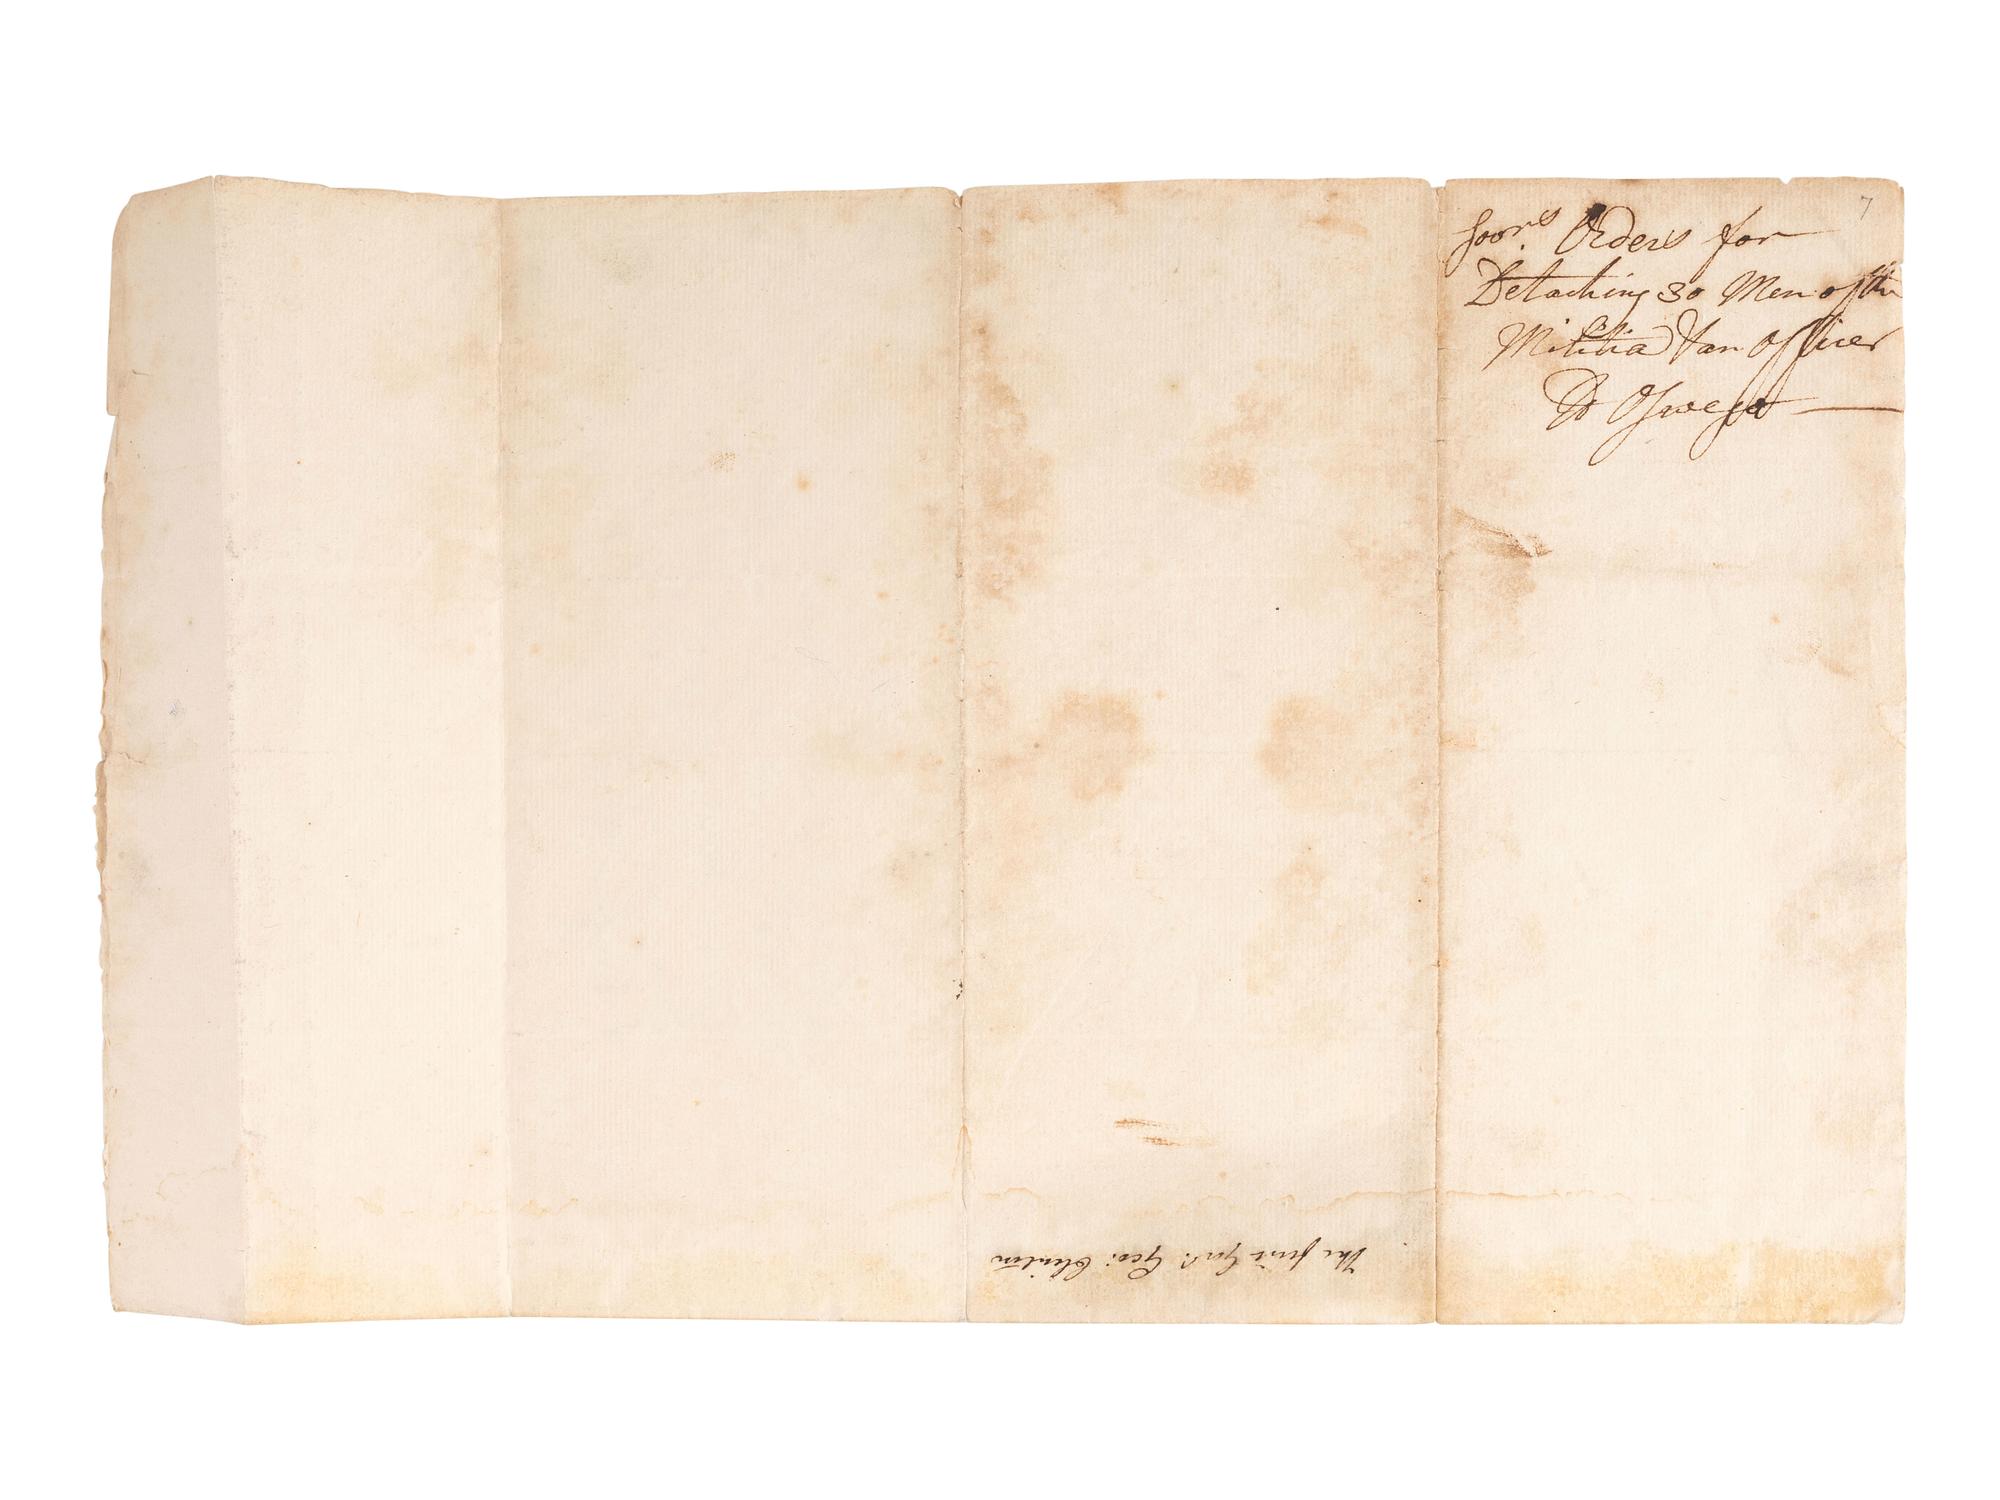 Govrs Orders for
Detaching 30 Men of the
Militia & an Officer
To Oswego
7
The first Govr. Geo: Clinton